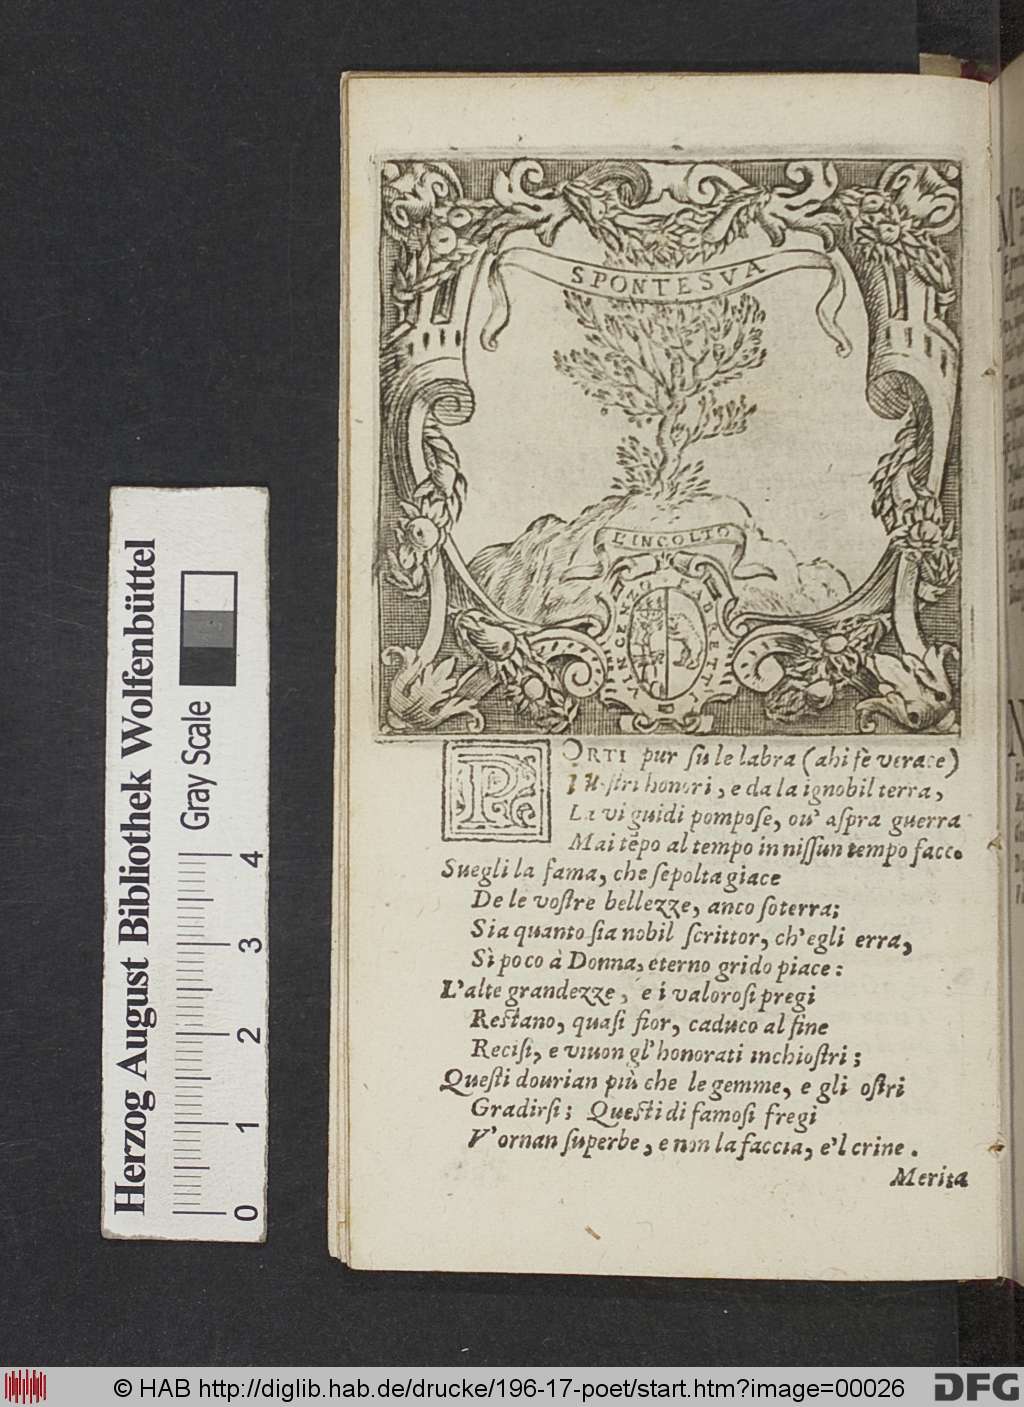 SPONTE SVA
L'INCOLTO
VINCENZO FABRETTI
PORTI pur su le labra (ahi fè verace)
I vostri honori, e da la ignobil terra,
La vi guidi pompose, ou' aspra guerra
Mai tẽpo al tempo in nissun tempo face.
Suegli la fama, che sepolta giace
De le vostre bellezze, anco soterra;
Sia quanto sia nobil scrittor, ch'egli erra,
Sì poco à Donna, eterno grido piace:
L'alte grandezze, e i valorosi pregi
Restano, quasi fior, caduco al fine
Recisi, e viuon gl'honorati inchiostri;
Questi dourian più che le gemme, e gli ostri
Gradirsi; Questi di famosi fregi
V'ornan superbe, e non la faccia, e'l crine.
Merita
Herzog August Bibliothek Wolfenbüttel
Gray Scale
0 1 2 3 4
© HAB http://diglib.hab.de/drucke/196-17-poet/start.htm?image=00026
DFG